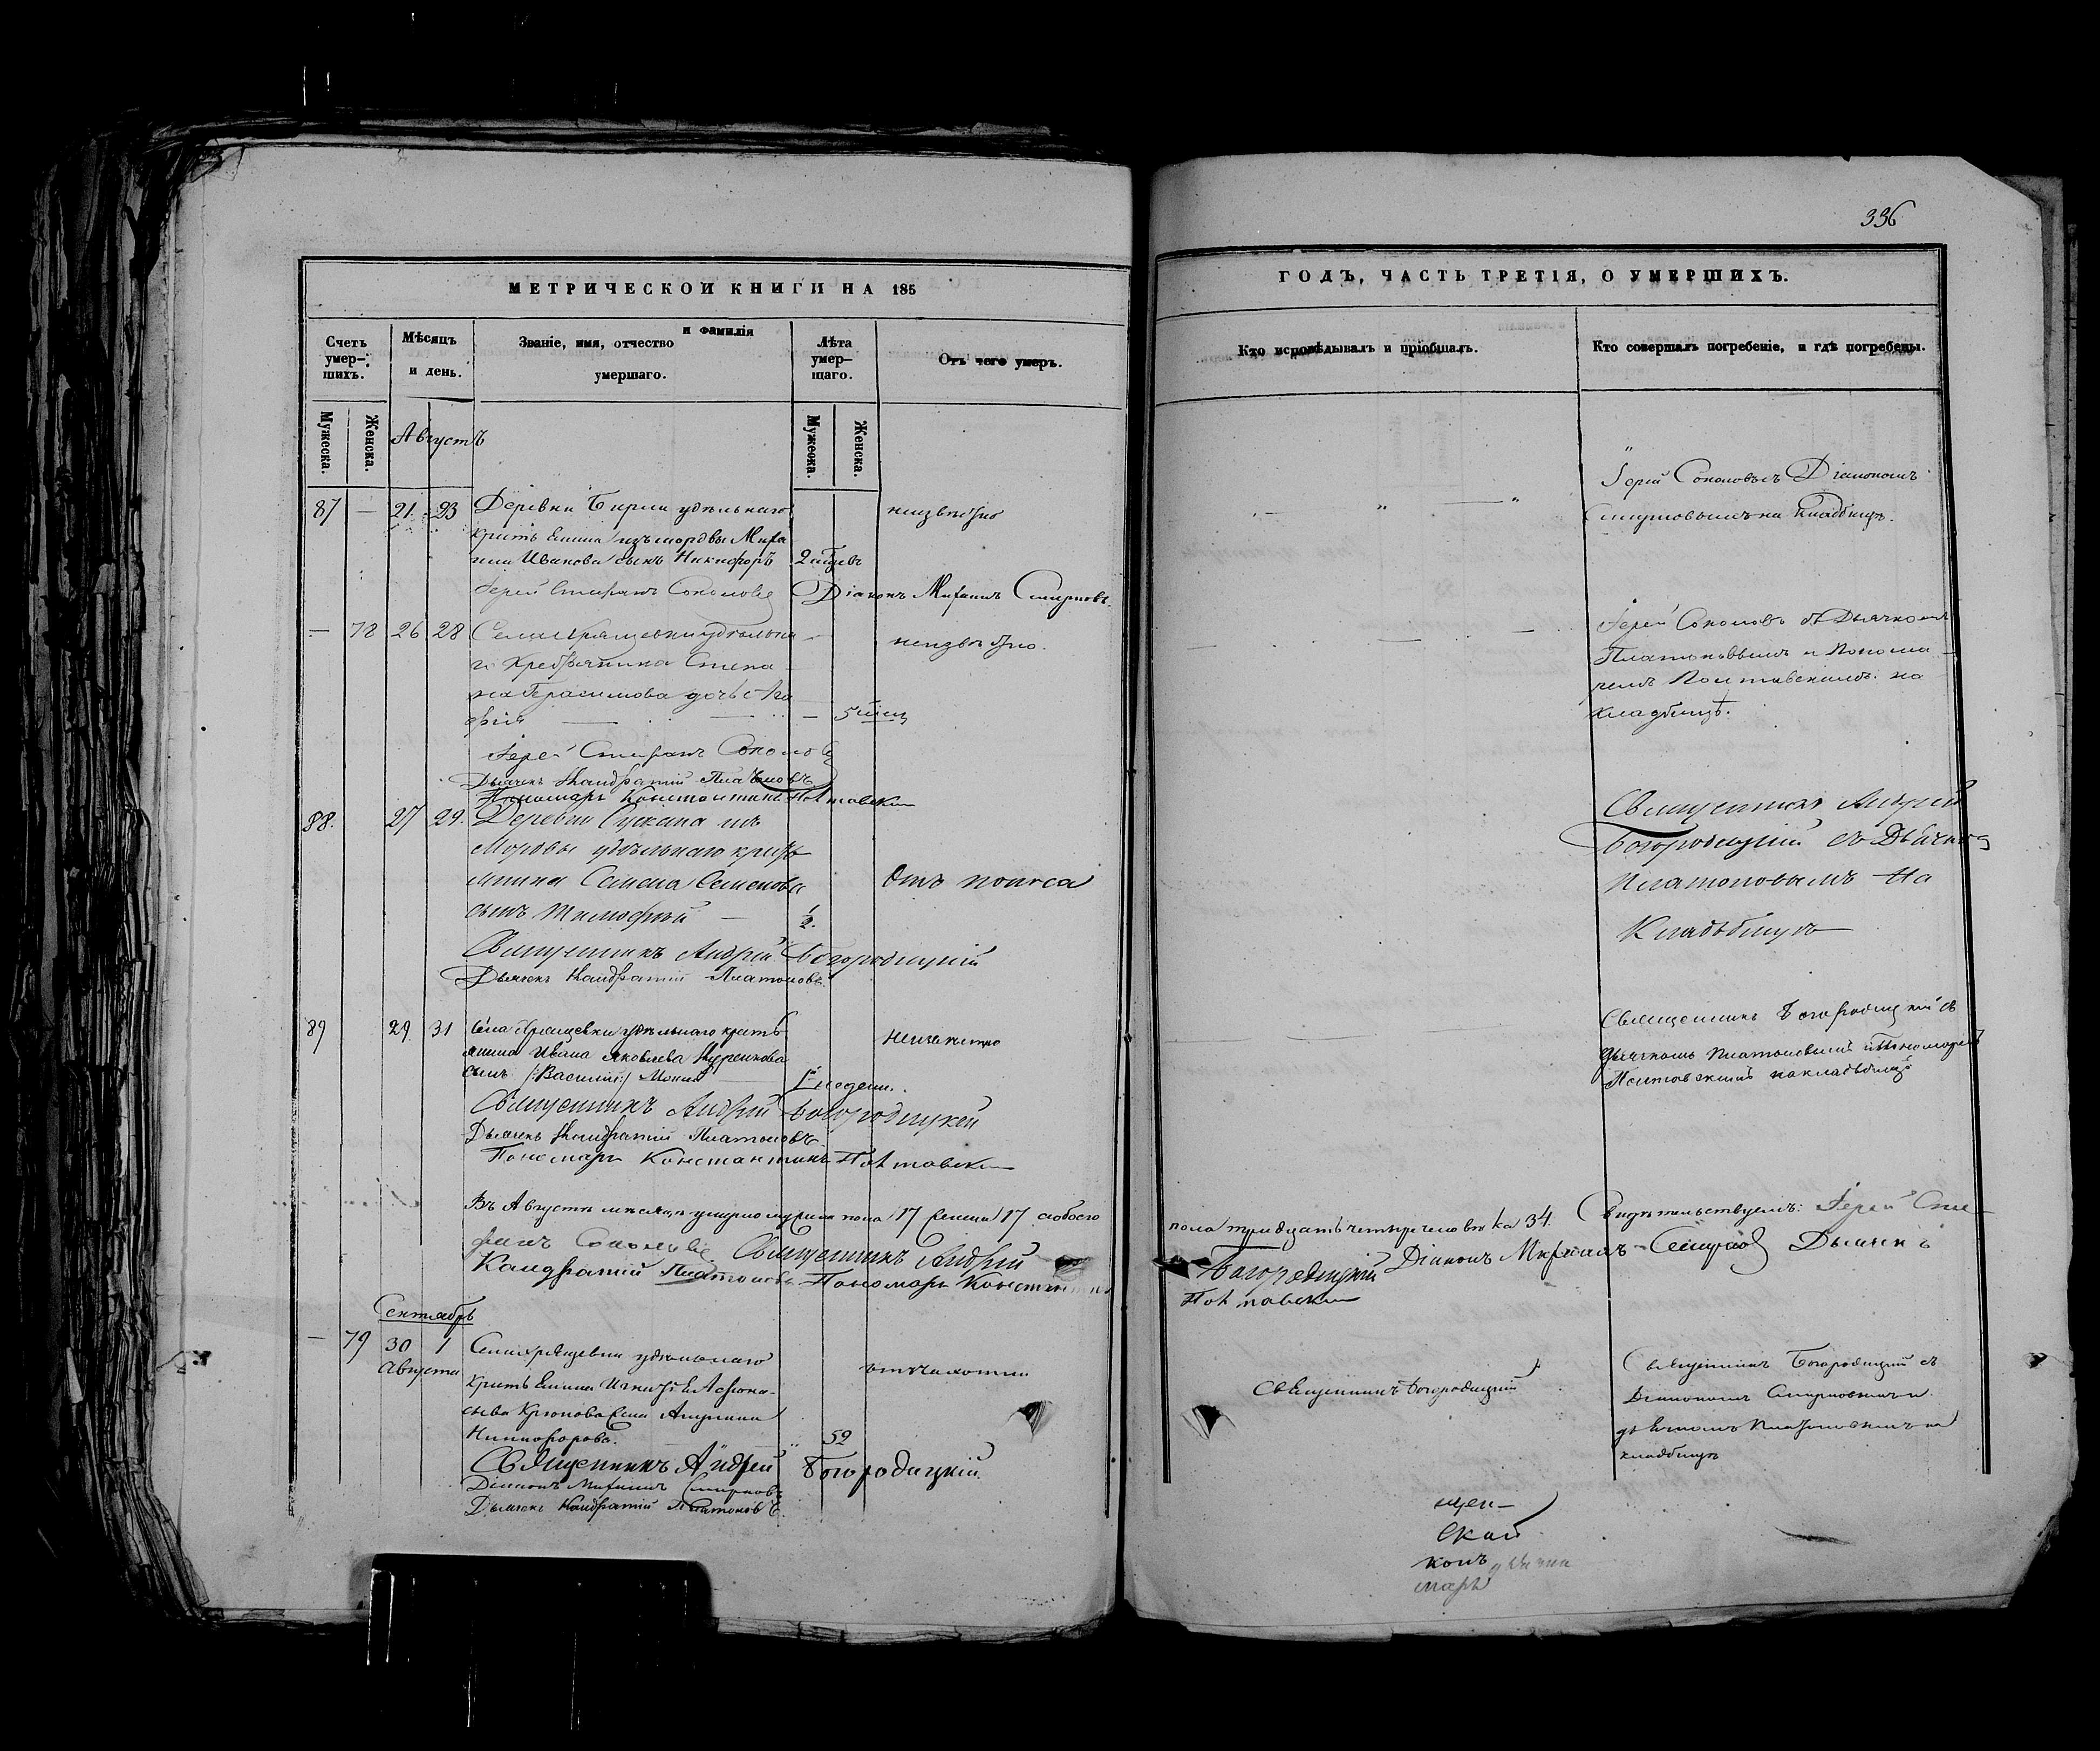 336
МЕТРИЧЕСКОЙ КНИГИ НА 185
ГОДЪ, ЧАСТЬ ТРЕТІЯ, О УМЕРШИХЪ.
Счетъ умер-шихъ.
Мѣсяцъ и день.
Званіе, имя, отчество и фамилія умершаго.
Лѣта умер-шаго.
Отъ чего умеръ.
Кто исповѣдывалъ и пріобщалъ.
Кто совершалъ погребеніе, и гдѣ погребены.
Мужеска.
Женска.
Августъ
Мужеска.
Женска.
87 — 21 23 Деревни удѣльнаго
крестьянина изъ мордвы Михаи
ла Иванова сынъ Никифоръ
неизвѣстно
Іерей Соколовъ съ Діакономъ
Смирновымъ на кладбищѣ.
Іерей Стефанъ Соколовъ
Діаконъ Михаилъ Смирновъ.
— 78 26 28 Села Хрящевки удѣльна
го крестьянина Степа
на Герасимова дочь Ага
фія — 5
неизвѣстно.
Іерей Соколовъ съ Дьячкомъ
Платоновымъ и Понома
ремъ Полтавскимъ на
кладбищѣ.
Іерей Стефанъ Соколовъ
Дьячекъ Кандратій Платоновъ
Пономарь Константинъ Полтавски
88. 27 29. Деревни Сускана изъ
Мордвы удѣльнаго кресть
янина Семена Семенова
сынъ Тимофей — ½.
Отъ поноса
Священникъ Андрей
Богородицкій съ Дьячко
Платоновымъ на
Кладбищѣ
Священникъ Андрей Богородицкій
Дьячекъ Кандратій Платоновъ.
89 29 31 Села Хрящевки удѣльнаго кресть
янина Ивана Яковлева
сынъ /:Василій:/
недели.
Священникъ Богородицкій съ
дьячкомъ Платоновымъ и Пономаремъ
Полтавскимъ на кладбищѣ
Священникъ Андрей Богородицкей
Дьячекъ Кандратій Платоновъ.
Пономарь Константинъ Полтавски
Въ Августѣ месяцѣ умерло мужска пола 17 женска 17 а обоего
пола тридцать четыре человѣка 34. Свидѣтельствуемъ: Іерей Сте
фанъ Соколовъ Священникъ Андрей
Богородицкій Діаконъ Михаилъ Смирновъ Дьячекъ
Кандратій Платоновъ Пономарь Константинъ
Полтавски
Сентябрь
— 79 30 1 Села Хрящевки удѣльнаго
Августа
крестьянина Афона-
сьева Крюкова жена Акулина
Никифорова. 52
отъ чахотки
Священникъ Богородицкій
Священникъ Богородицкій съ
Діакономъ Смирновымъ и
дьячкомъ Платоновымъ на
кладбищѣ
Священникъ Андрей Богородицкій.
Діаконъ Михаилъ Смирновъ
Дьячекъ Кандратій Платоновъ
щен-
ской
конъ
марь